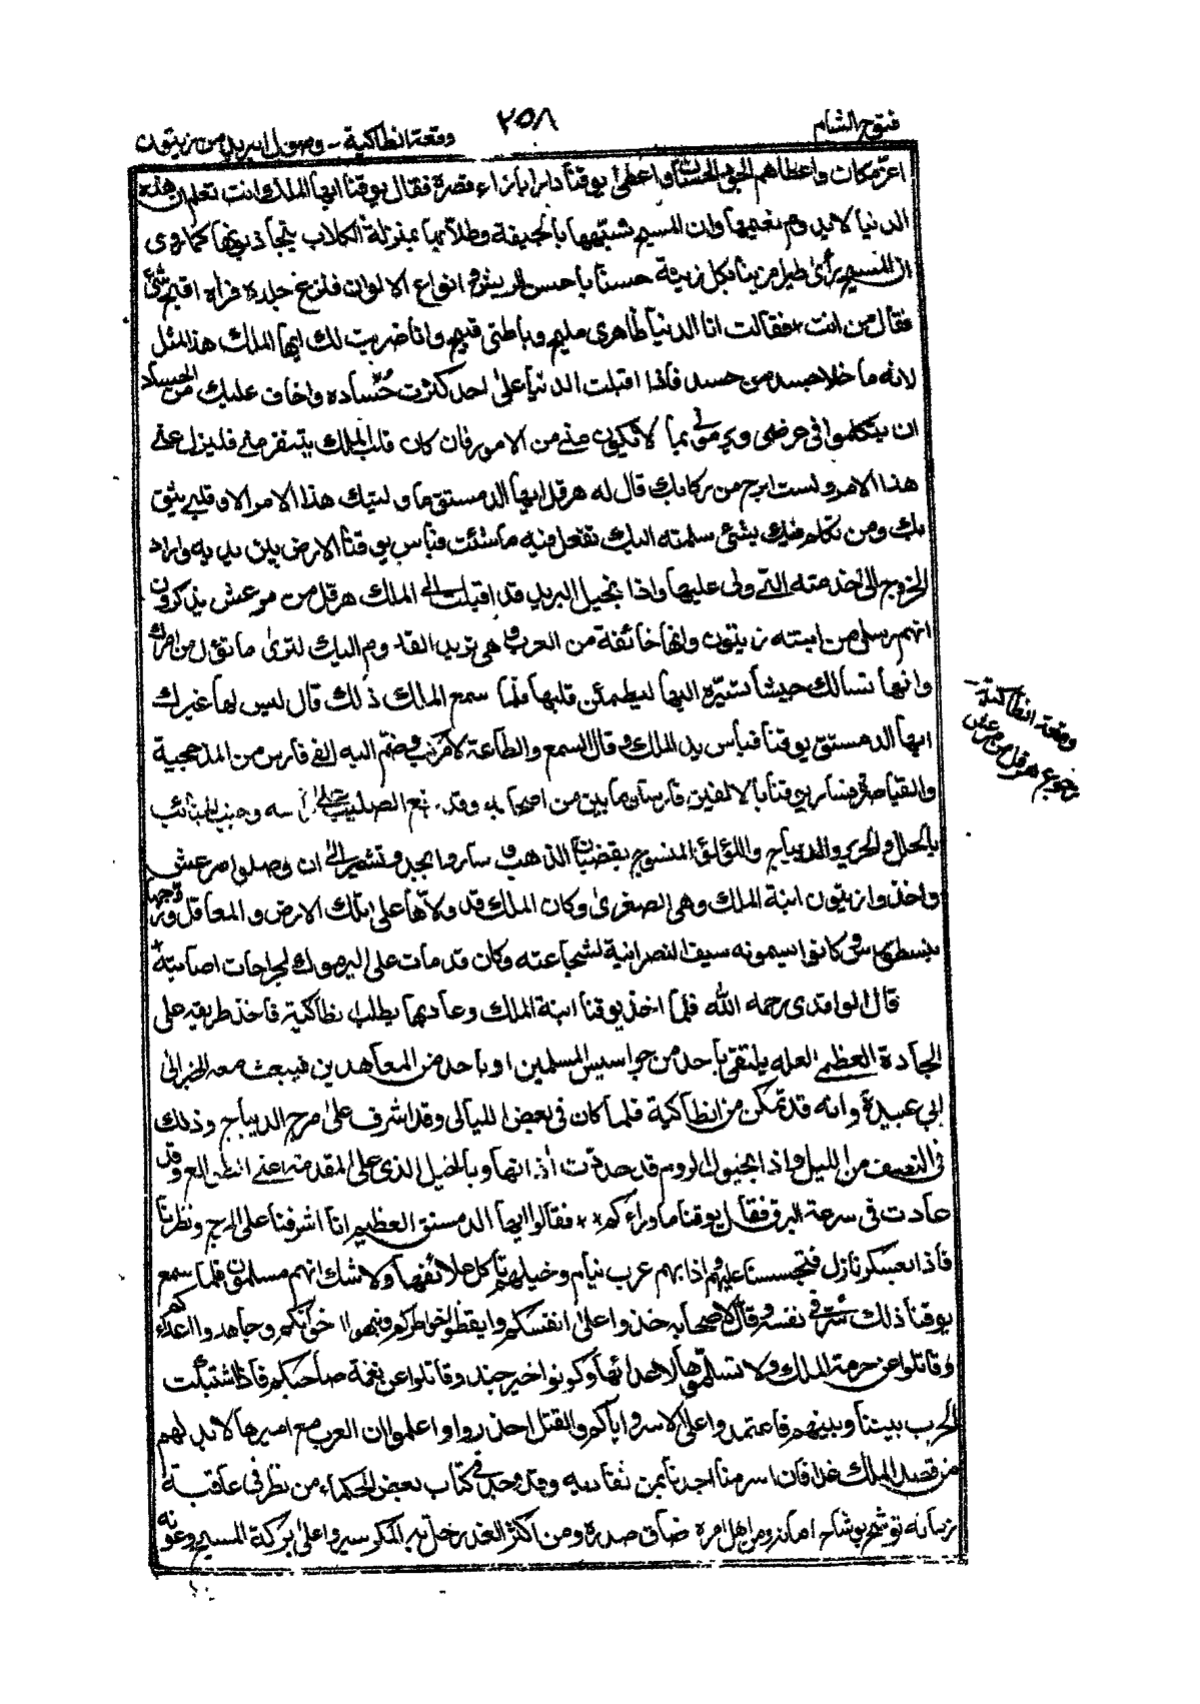 فتوح الشام
٢٥٨
وقعة انطاكية - وصول البريد من زيتون
اعزّ مكان واعطاهم الجوق الحسنات واعطى يوقنا دارا بازاء قصره فقال يوقنا ايها الملك وانت تعلم ان هذه
الدنيا لا يدوم نعيمها وان المسيح شبّهها بالجيفة وطلابها بمنزلة الكلاب يتجاذبونها كما روى
ان المسيح رأى طيرا مزينا بكل زينة حسنا باحسن الريش وانواع الالوان فنزع جلده فراه اقبح شئ
فقال من انت فقالت انا الدنيا ظاهرى مليح وباطنى قبيح وانا ضربت لك ايها الملك هذا المثل
لانه ما خلا جسد من حسد فاذا اقبلت الدنيا على احد كثرت حُسّاده واخاف عليك من الحساد
ان يتكلموا فى عرضى ويرمونى بما لا تكون منے من الامور فان كان قلب الملك يتنفر منے فليزل عنے
هذا الامر ولست ابرح من ركابك قال له هرقل ايها الدمستق ما وليتك هذا الامر الا وقلبے يثق
بك ومن تكلم فيك بشئ سلمته اليك تفعل فيه ما شئت فباس يوقنا الارض بين يديه واراد
الخروج الى خدمته التے ولى عليها واذا بخيل البريد قد اقبلت الى الملك هرقل من مرعش يذكرون
انهم رسل من ابنته زيتون وانها خائفة من العرب وهى تريد القدوم اليك لترى ما تؤل من امرك
وانها تسالك جيشا تسيّره اليها ليطمئن قلبها فلما سمع الملك ذلك قال ليس لها غيرك
ايها الدمستق يوقنا فباس يد الملك وقال السمع والطاعة لامرك وضمّ اليه الفے فارس من المذبحية
والقياصرة فسار يوقنا بالالفين فارسان ما بين من اصحابه وقد رفع الصليب على راسه وجنب الجنائب
بالحلل والحرير والديباج واللؤلؤ المنسوج بقضبان الذهب وساروا بجد وتشمير الى ان وصلوا مرعش
واخذوا زيتون ابنة الملك وهى الصغرى وكان الملك قد ولاّها على تلك الارض والمعاقل وزوجها
بنسطورس وكانوا يسمونه سيف النصرانية لشجاعته وكان قد مات على اليرموك لجراحات اصابته
قال الواقدى رحمه الله فلما اخذ يوقنا ابنة الملك وعاد بها يطلب انطاكية فاخذ طريقه على
الجادة العظمى لعله يلتقى باحد من جواسيس المسلمين او باحد من المعاهدين فيبعث معه الخبر الى
ابى عبيدة وانه قد تمكن من انطاكية فلما كان فى بعض الليالى وقد اشرف على مرج الديباج وذلك
فى النصف من الليل واذا بخيول الروم قد صدّت اذانها وبالخيل الذى على المقدمة اعنے الطلائع وقد
عادت فى سرعة البرق فقال يوقنا ما وراءكم فقالوا ايها الدمستق العظيم انا اشرفنا على المرج ونظرنا
فاذا بعسكر نازل فتجسسنا عليهم واذا بهم عرب نيام وخيلهم تاكل علائفها ولا شك انهم مسلمون فلما سمع
يوقنا ذلك سُرّ فى نفسه وقال لاصحابه خذوا على انفسكم وايقظوا خواطركم ونبهوا اخوانكم وجاهدوا اعداءكم
وقاتلوا عن حرمة الملك ولا تسلموها لاعدائها وكونوا خير جند وقاتلوا عن نعمة صاحبكم فاذا اشتبكت
الحرب بيننا وبينهم فاعتمدوا على الاسر واياكم والقتل احذروا واعلموا ان العرب مع اميرها لا بد لهم
من قصد الملك غدا فان اسر منا احد نا بمن نفاديه وقد وجد فى كتاب بعض الحكماء من نظر فى عاقبة
زمانه توشح بوشاح امانه ومن اهمل امره ضاق صدره ومن اكثر الغدر حل به المكر سيروا على بركة المسيح وعونه
وقعة انطاكية
رجوع هرقل من مرعش